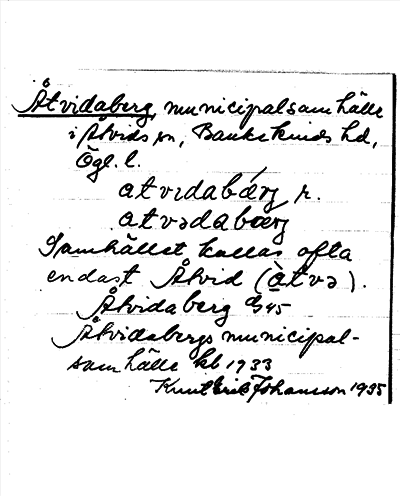 Åtvidaberg, municipalsamhälle
i Åtvids sn, Bankekinds hd,
Ögl. l.
atvidabärj r.
atvədabærj
Samhället kallas ofta
endast Åtvid (àtvə).
Åtvidaberg 45
Åtvidabergs municipal-
samhälle kb 1933
Knut Erik Johansson 1935